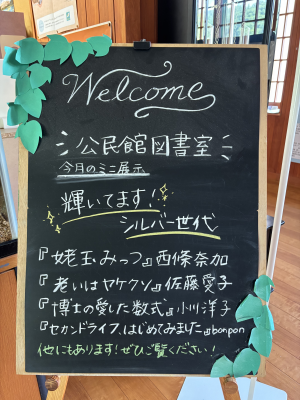 Welcome
公民館図書室
今月のミニ展示
輝いてます!
シルバー世代
『姥玉みっつ』西條奈加
『老いはヤケクソ』佐藤愛子
『博士の愛した数式』小川洋子
『セカンドライフ、はじめてみました』bonpon
他にもあります!ぜひご覧ください!